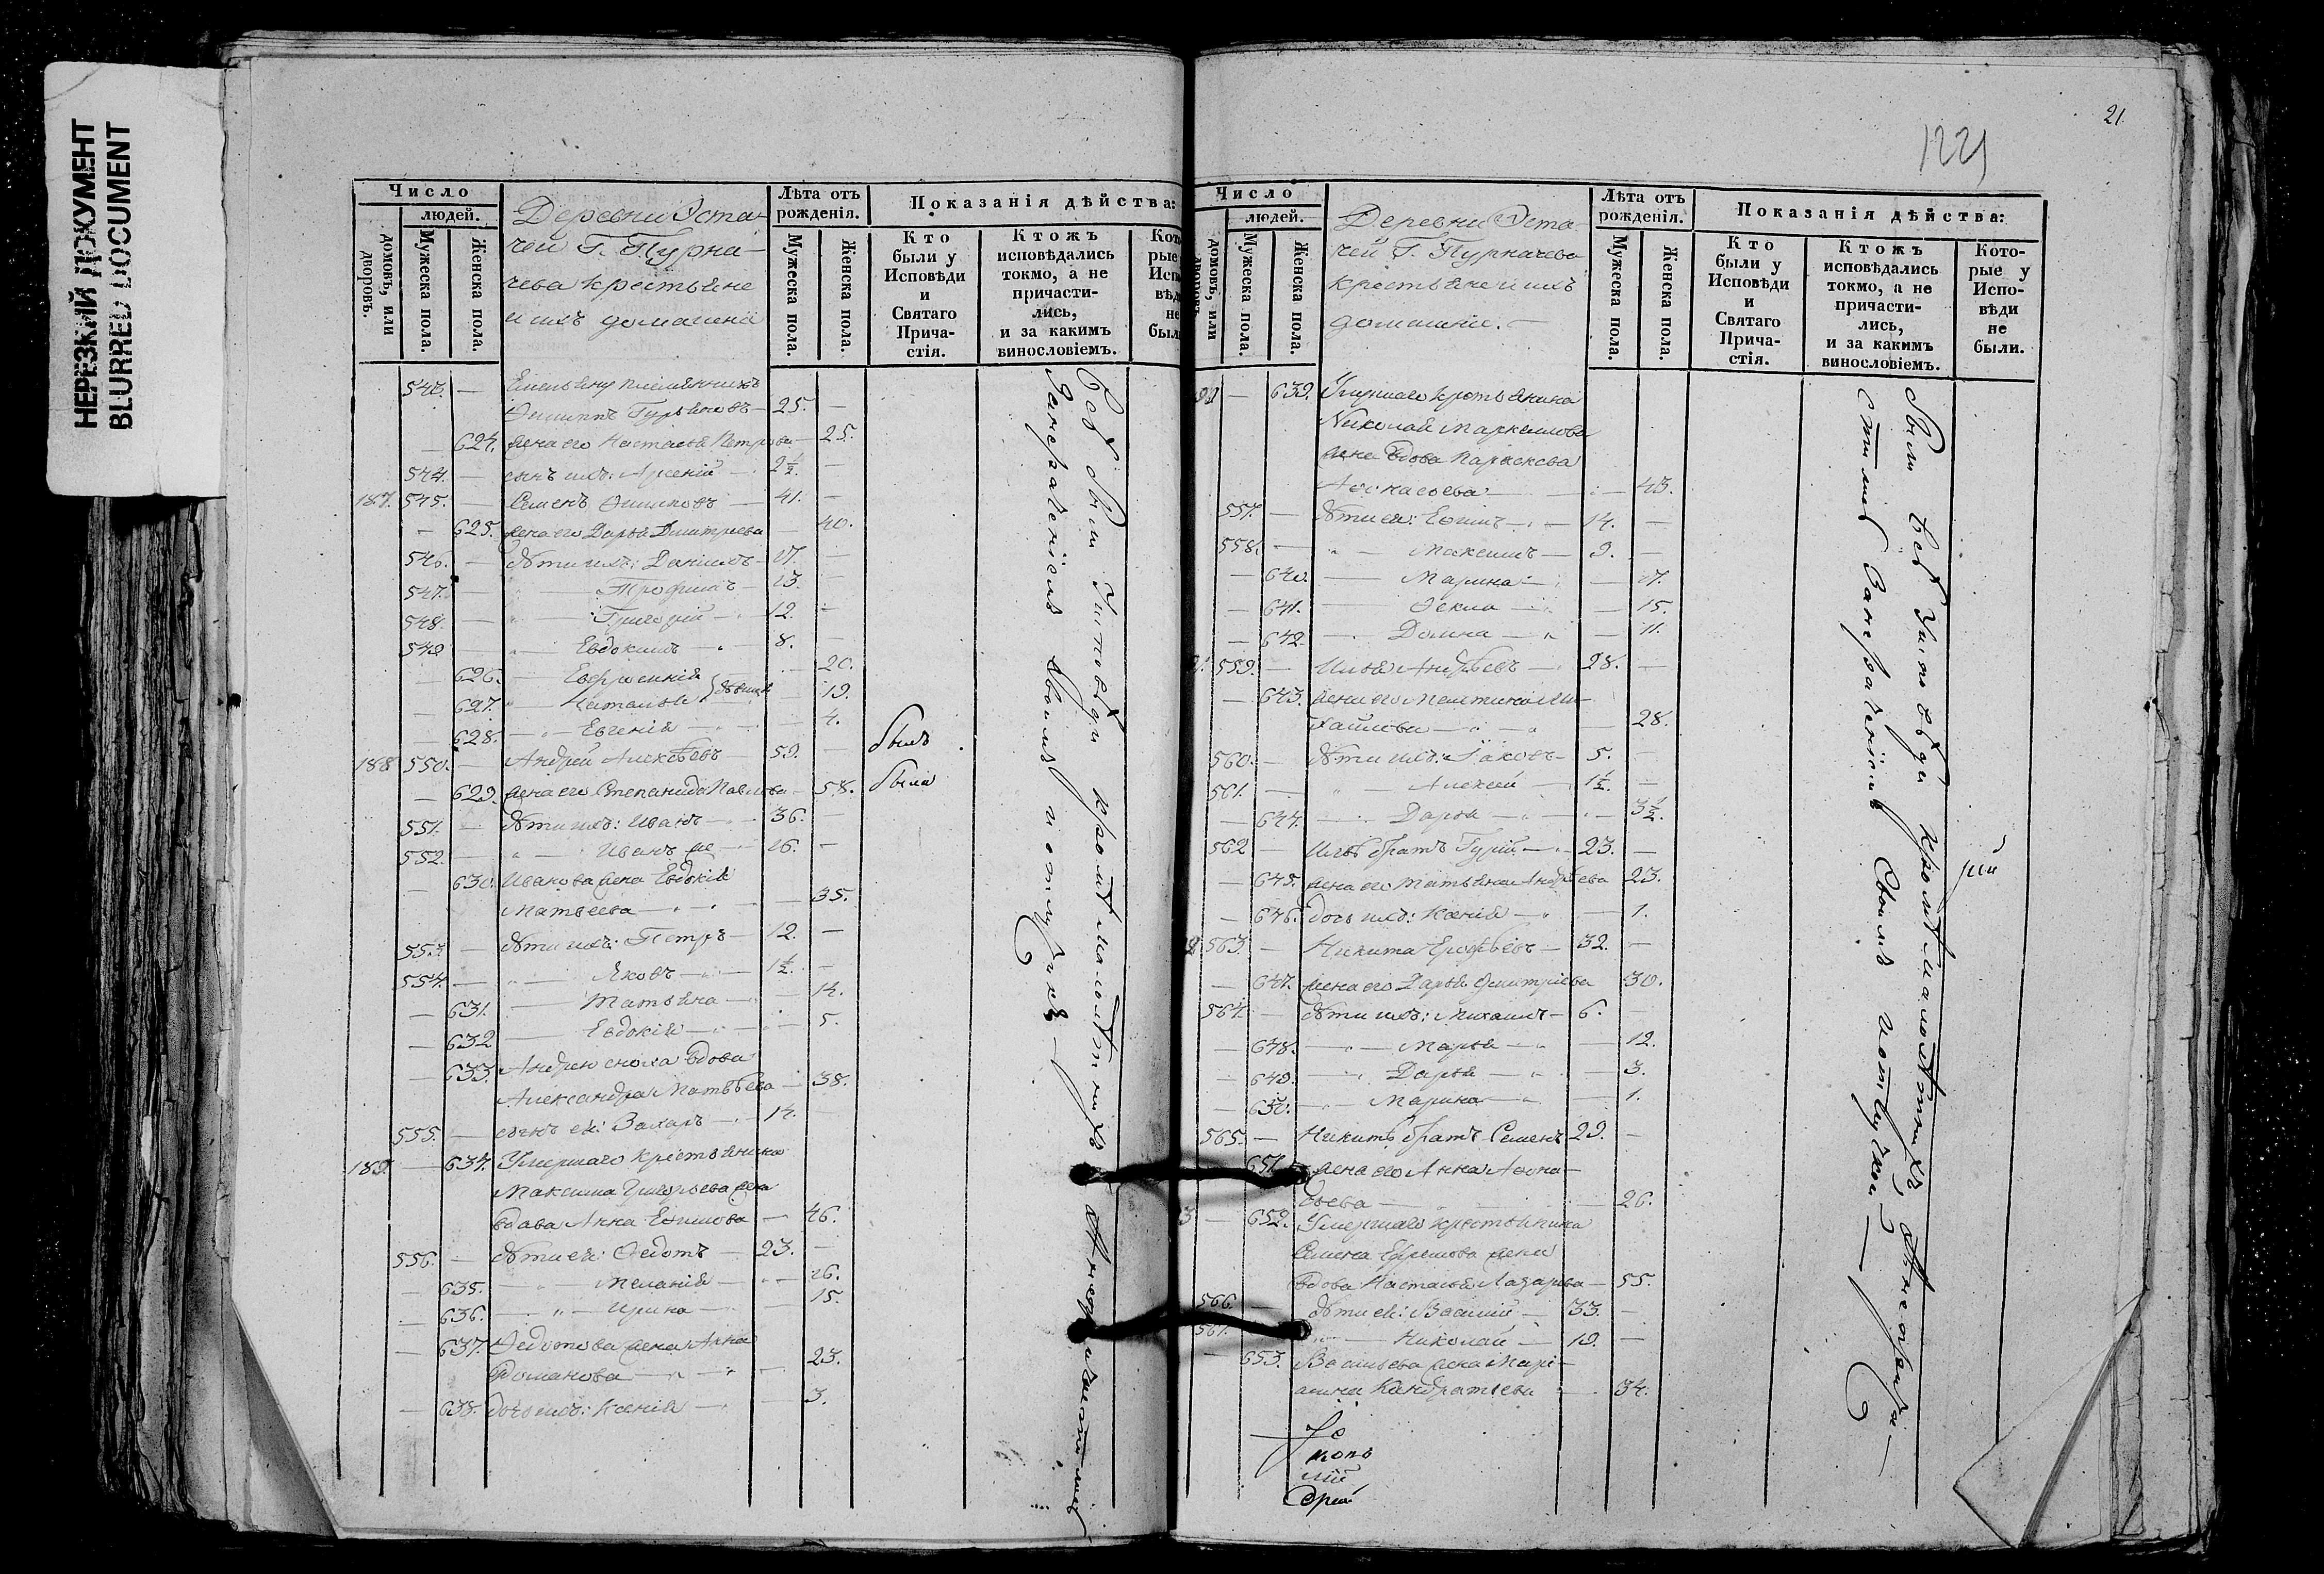 НЕРЕЗКИЙ ДОКУМЕНТ
BLURRED DOCUMENT
Число
людей.
домовъ, или дворовъ.
Мужеска пола.
Женска пола.
Деревни Эста-
чей Г. Пурна-
чева крестьяне
и ихъ домашніе
Лѣта отъ рожденія.
Мужеска пола.
Женска пола.
Показанія дѣйства:
Кто были у Исповѣди и Святаго Прича-стія.
Ктожъ исповѣдались токмо, а не причасти-лись, и за какимъ винословіемъ.
543. — Емельяну племянникъ
Филиппъ Гурьяновъ — 25. —
— 624. жена его Настасья Петрова — 25.
544. — сынъ ихъ: Арсеній — 2½. —
187. 545. — Семенъ — 41. —
— 625. жена его Дарья Дмитріева — 40.
546. — дѣти ихъ: Даніилъ — 17. —
547. — Трофимъ — 13. —
548. — " — Григорій — 12. —
549 — " — Евдокимъ — 8. —
— 626. — Евфросинія — 20.
— 627. " — Наталья } дѣвицы — 19.
— 628. — " — Евгенія — 4.
188 550. — Андрей Алексѣевъ — 59. — былъ
— 629. жена его Степанида Павлова — 58. была
551. — дѣти ихъ: Иванъ — 36. —
552. — " — Иванъ же — 16. —
— 630. Иванова жена Евдокія
Матвеева — 35.
553 — дѣти ихъ: Петръ — 12. —
554. — " — Яковъ — 1½. —
— 631. — Татьяна — 14.
— 632 — Евдокія — 5.
— 633. Андрею сноха вдова
Александра Матвѣева — 38.
555. — сынъ ея: Захаръ — 14. —
189. — 634. Умершаго крестьянина
Максима Григорьева жена
вдова Анна Ефимова — 46.
556. — дѣти ея: Федотъ — 23. —
— 635. — " — Меланія — 16.
— 636. — " — Ирина — 15.
— 637. Федотова жена Анна
Романова — " — " — 23.
— 638. дочь ихъ: Ксенія — 3.
Всѣ были у исповѣди кромѣ малолѣтныхъ
21
1221
Число
людей.
домовъ, или
Мужеска пола.
Женска пола.
Деревни Эста-
чей Г. Пурначева
крестьяне и ихъ
домашніе. —
Лѣта отъ рожденія.
Мужеска пола.
Женска пола.
Показанія дѣйства:
Кто были у Исповѣди и Святаго Прича-стія.
Ктожъ исповѣдались токмо, а не причасти-лись, и за какимъ винословіемъ.
Кото-рые у Испо-вѣди не были.
— 639. Умершаго крестьянина
Николая Маркелова
жена вдова Параскева
Афонасьева — 43.
557. — дѣти ея: Ефимъ — 14. —
558. — " — Максимъ — 9. —
— 640. — Марина — 17.
— 641. — Фекла — 15.
— 642 — Домна — " — 11.
559. — Илья Андреевъ — 28. —
— 643. жена его Ми-
хайлова — " — " — 28.
560. — дѣти ихъ: Іаковъ — 5. —
561. — " — Алексей — 1½. —
— 644. — Дарья — 3½.
562 — Ильѣ братъ Гурій — 23. —
— 645. жена его Татьяна Андреева 23.
— 646. дочь ихъ: Ксенія — " — 1.
563. — Никита Ерофѣевъ — 32. —
— 647. жена его Дарья Дмитріева 30.
564. — дѣти ихъ: Михаилъ — 6. —
— 648. — " — Марья — " — 12.
— 649. — " Дарья — " — 3.
— 650. — " — Марина — " — 1.
565. — Никитѣ братъ Семенъ 29. —
651. жена его Анна Афона-
сьева — 26.
— 652. Умершаго крестьянина
Семена Ефремова жена
вдова Настасья Лазарева — 55.
566. — дѣти ея: Василій — 33. —
567. — Николай — 19. —
653. Васильева жена Марі-
амна Кондратьева — 34.
Были всѣ у исповѣди кромѣ малолѣтныхъ,